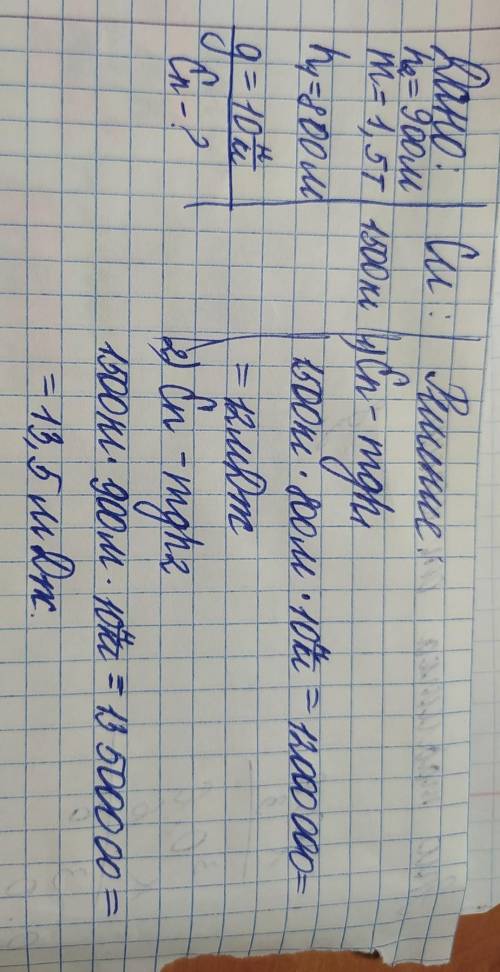 Дано:
h₂=900м
m=1,5т
h₁=800м
g=10 н/кг
Еп-?
Си:
1500кг
Решение:
1) Еп - mgh₁
1500кг·800м·10 н/кг = 12000 000=
=12мДж
2) Еп - mgh₂
1500кг·900м·10 н/кг = 13 5000 00=
= 13,5 мДж.